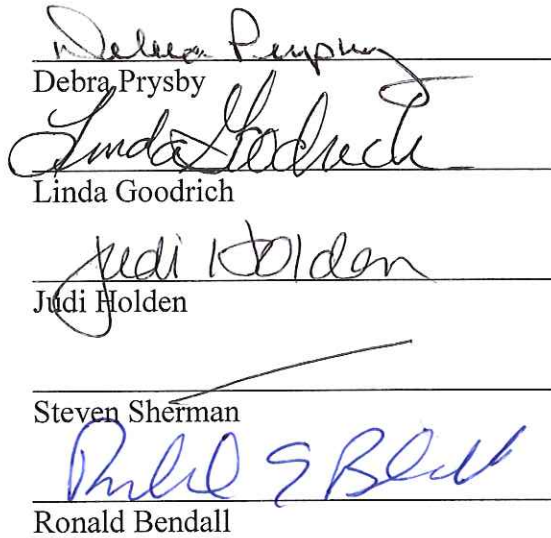 Debra Prysby
Debra Prysby
Linda Goodrich
Linda Goodrich
Judi Holden
Judi Holden
Steven Sherman
Ronald Bendall